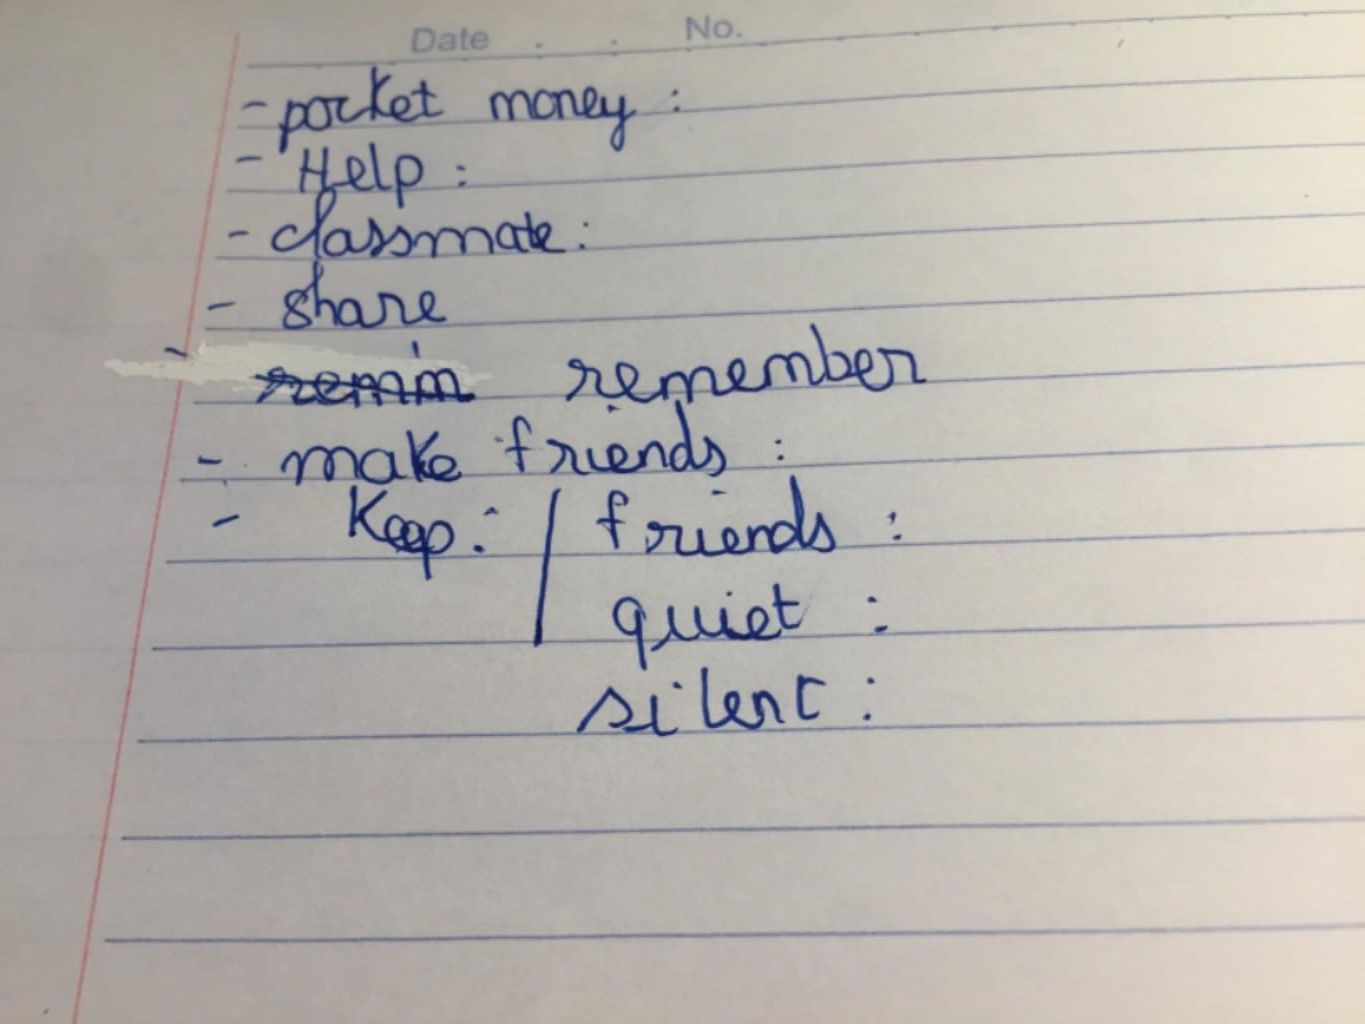 Date . : No.
- pocket money :
- Help :
- classmate :
- share
- remin remember
- make friends :
- Keep : / friends :
quiet :
silent :